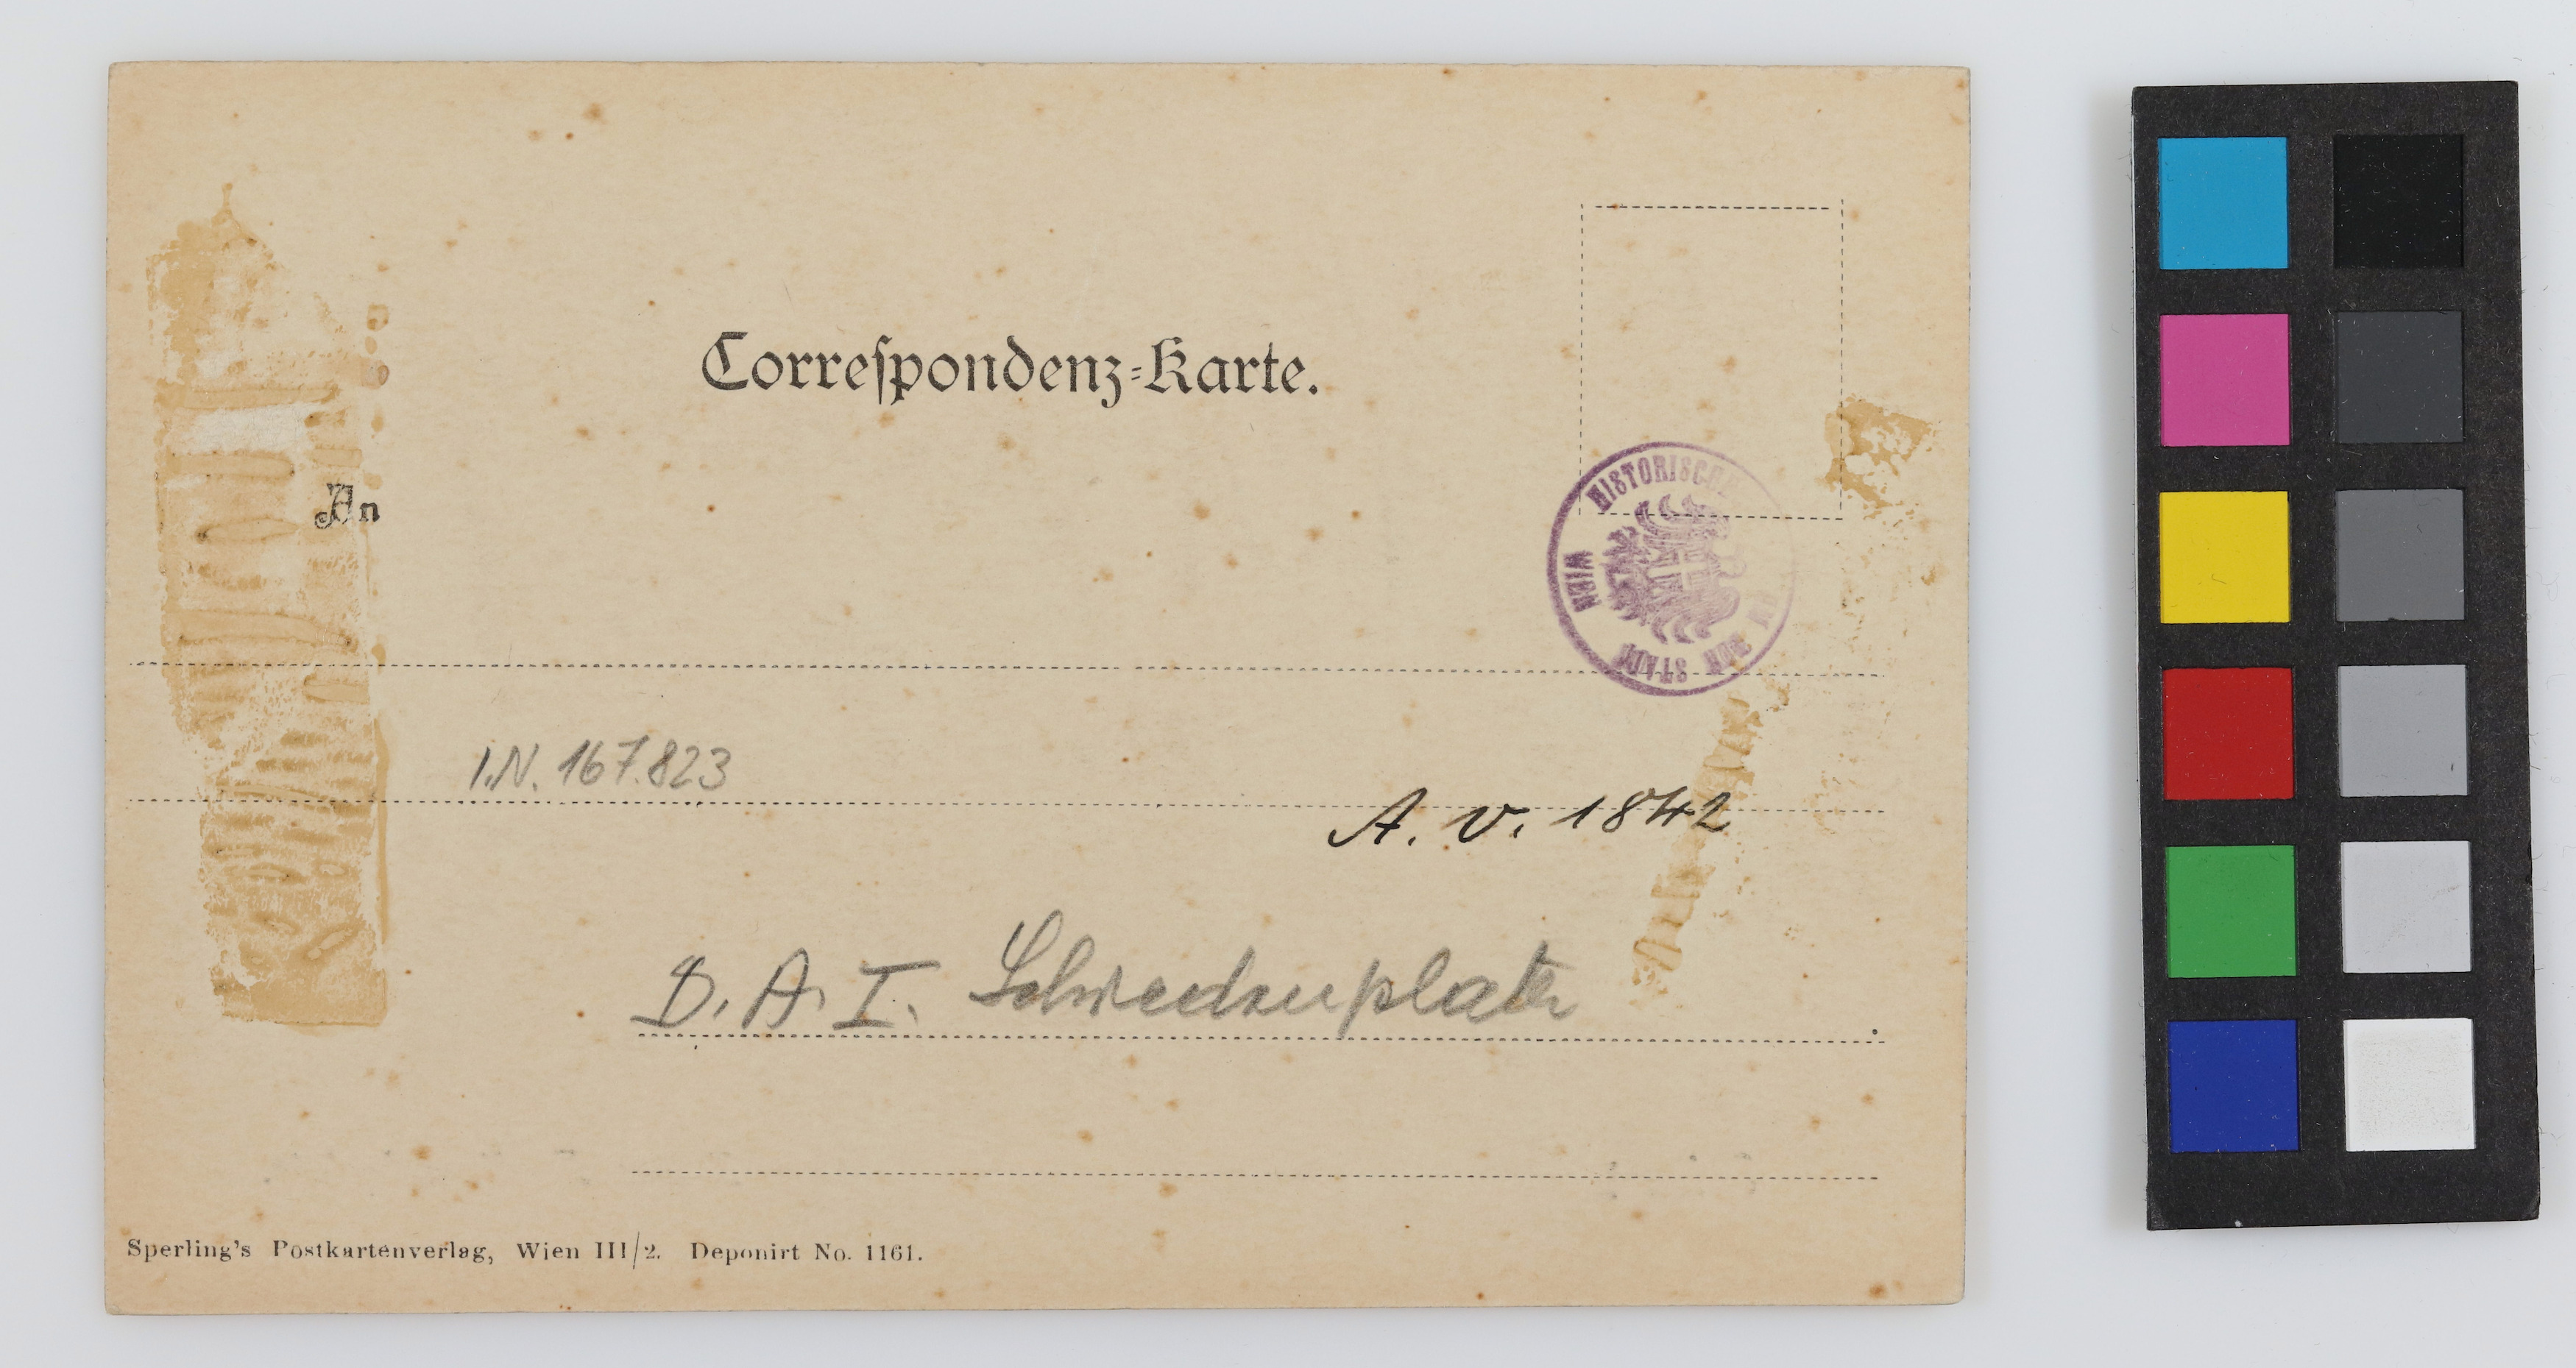 Correſpondenz-Karte.
HISTORISCHE
DER STADT WIEN
An
I.N. 167.823
A. V. 1842
D. A. I. Schwedenplatz
Sperling's Postkartenverlag, Wien III/2. Deponirt No. 1161.